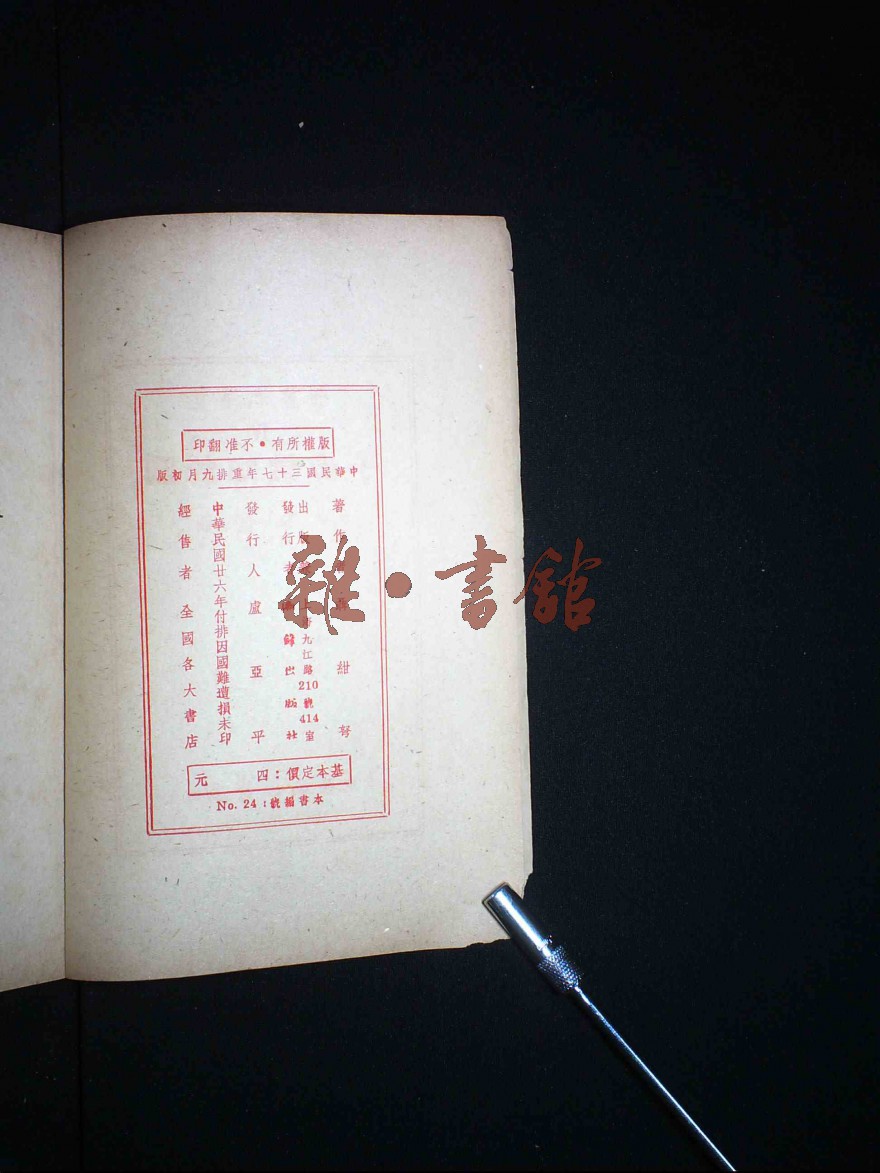 版權所有•不准翻印
中華民國三十七年重排九月初版
著作 紺弩
出版
發行者
海九江路210號414室
出版社
發行人 盧亞平
中華民國廿六年付排因國難遭損未印
經售者 全國各大書店
基本定價：四元
本書編號：No. 24
雜·書館